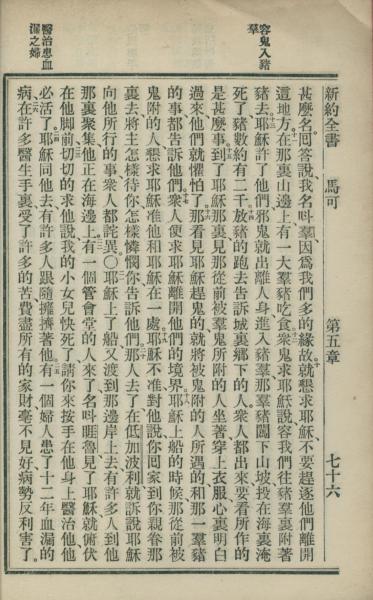 新約全書　馬可　第五章　七十六
容鬼入豬羣
醫治患血漏之婦
甚麼名、回答說、我名叫羣、因爲我們多的緣故、就懇求耶穌、不要趕逐他們離開
這地方、在那裏山邊上、有一大羣豬吃食、衆鬼求耶穌說、容我們往豬羣裏、附著
豬去、耶穌許了他們、邪鬼就出離人身、進入豬羣、那羣豬闖下山坡、投在海裏淹
死了、豬數約有二千、放豬的跑去告訴城裏鄉下的人、衆人都出來要看所作的
是甚麼事、到了耶穌那裏、見那從前被羣鬼所附的人、坐著、穿上衣服、心裏明白
過來、他們就懼怕了、那看見耶穌趕鬼的、就將被鬼附的人所遇的、和那一羣豬
的事、都告訴他們、衆人便求耶穌離開他們的境界、耶穌上船的時候、那從前被
鬼附的人、懇求耶穌准他和耶穌在一處、耶穌不准、對他說、你回家到你親眷那
裏去、將主怎樣待你、怎樣憐憫你、告訴他們、那人去了、在低加波利、就訴說耶穌
向他所行的事、衆人都詫異〇耶穌上了船、又渡到那邊岸上去、有許多人到他
那裏聚集、他正在海邊上、有一個管會堂的人來了、名叫睚魯、見了耶穌、就俯伏
在他脚前、切切的求他說、我的小女兒快死了、請你來按手在他身上、醫治他、他
必活了、耶穌同他去、有許多人跟隨擁擠著他、有一個婦人、患了十二年血漏的
病、在許多醫生手裏、受了許多的苦、費盡所有的家財、毫不見好、病勢反利害了、